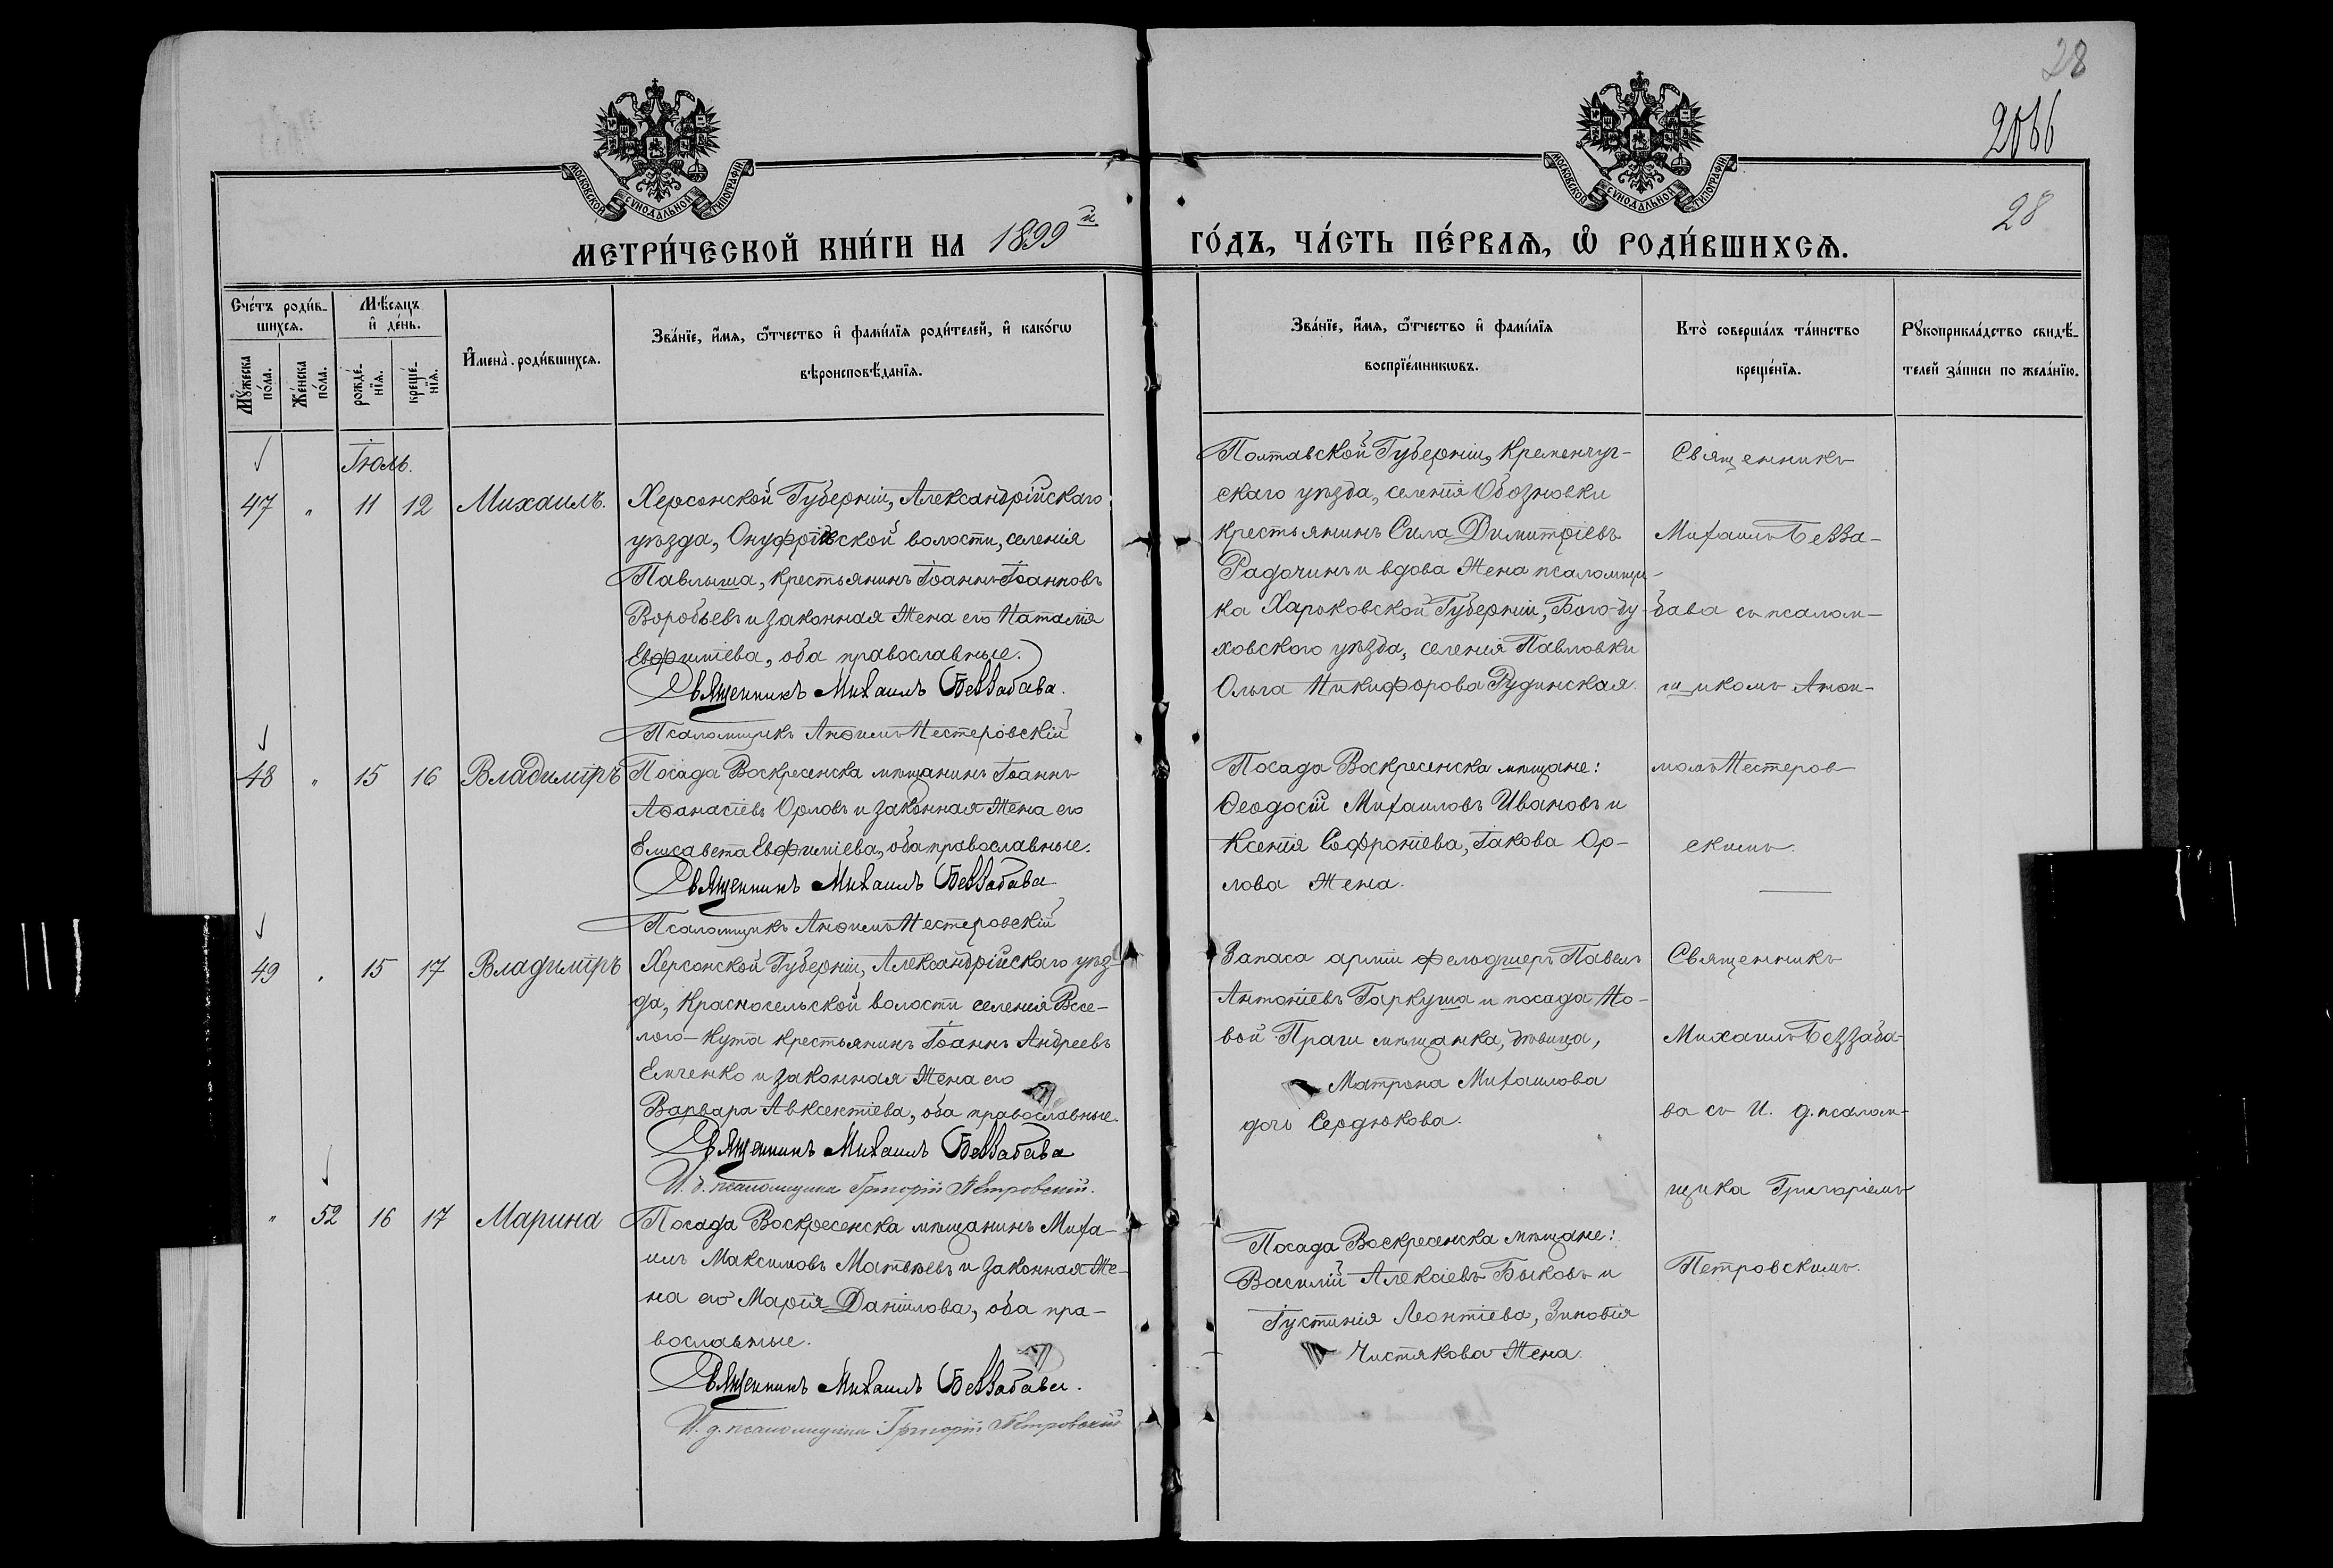 28
2066
28
МОСКОВСКОЙ СѴНОДАЛЬНОЙ ТИПОГРАФІИ
МОСКОВСКОЙ СѴНОДАЛЬНОЙ ТИПОГРАФІИ
МЕТРИ́ЧЕСКОЙ КНИ́ГИ НА 1899й ГО́ДЪ, ЧА́СТЬ ПЕ́РВАѦ, Ѡ҆ РОДИ́ВШИХСѦ.
Сче́тъ роди́в-
шихсѧ.
Мꙋ́жеска по́ла.
Же́нска по́ла.
Мѣ́сѧцъ
и҆ де́нь.
рожде́-нїѧ.
креще́-нїѧ.
И҆мена̀ роди́вшихсѧ.
Зва́нїе, и҆́мѧ, ѻ҆́тчество и҆ фами́лїѧ роди́телей, и҆ како́гѡ
вѣроисповѣ́данїѧ.
Зва́нїе, и҆́мѧ, ѻ҆́тчество и҆ фами́лїѧ
воспрїе́мникѡвъ.
Кто̀ соверша́лъ та́инство
креще́нїѧ.
Рꙋкоприкла́дство свидѣ́-
телей за́писи по жела́нїю.
Іюль.
47 " 11 12 Михаилъ.
Херсонской Губерніи, Александрійскаго
уѣзда, Онуфріевской волости, селенія
Павлыша, крестьянинъ Іоаннъ Іоанновъ
Воробьевъ и законная жена его Наталія
Евфиміева, оба православные.
Священникъ Михаилъ Беззабава.
Псаломщикъ Анфимъ Нестеровскій
Полтавской Губерніи, Кременчуг-
скаго уѣзда, селенія Обозновки
крестьянинъ Сила Димитріевъ
Радочинъ и вдова жена псаломщи-
ка Харьковской Губерніи, Бого-ду-
ховского уѣзда, селенія Павловки
Ольга Никифорова Рудинская.
Священникъ
Михаилъ Безза-
бава съ псалом-
щикомъ Анфи-
момъ Нестеров-
скимъ.
48 " 15 16 Владиміръ
Посада Воскресенска мѣщанинъ Іоаннъ
Аѳанасіевъ Орловъ и законная жена его
Елисавета Евфиміева, оба православные.
Священникъ Михаилъ Беззабава
Псаломщикъ Анфимъ Нестеровскій
Посада Воскресенска мѣщане:
Ѳеодосій Михаиловъ Ивановъ и
Ксенія Софроніева, Іакова Ор-
лова жена.
49 " 15 17 Владиміръ
Херсонской Губерніи, Александрійскаго уѣз-
да, Красносельской волости селенія Весе-
лого-Кута крестьянинъ Іоаннъ Андреевъ
Емченко и законная жена его
Варвара Авксентіева, оба православные.
Священникъ Михаилъ Беззабава
И. д. псаломщика Григорій Петровскій.
Запаса арміи фельдшеръ Павелъ
Антоніевъ Гаркуша и посада Но-
вой Праги мѣщанка, дѣвица,
Матрона Михаилова
дочь Сердюкова.
Священникъ
Михаилъ Беззаба-
ва съ И. д. псалом-
щика Григоріемъ
Петровскимъ.
" 52 16 17 Марина
Посада Воскресенска мѣщанинъ Миха-
илъ Максимовъ Матвѣевъ и законная же-
на его Марія Даніилова, оба пра-
вославные.
Священникъ Михаилъ Беззабава.
И. д. псаломщика Григорій Петровскій
Посада Воскресенска мѣщане:
Василій Алексіевъ Быковъ и
Іустинія Леонтіева, Зиновія
Чистякова жена.